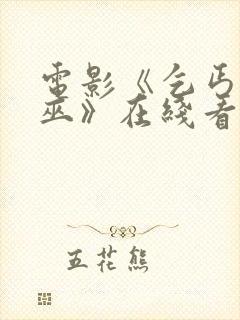 電影《乞丐
巫》在綫看
五花熊